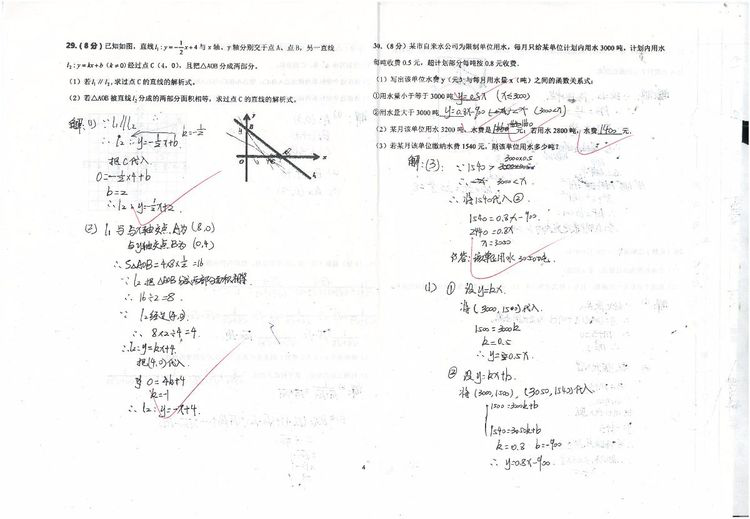 29.(8分)已知如图,直线l₁:y=-1/2x+4与x轴、y轴分别交于点A、点B,另一直线
l₂:y=kx+b(k≠0)经过点C(4,0),且把△AOB分成两部分.
(1)若l₁∥l₂,求过点C的直线的解析式.
(2)若△AOB被直线l₂分成的两部分面积相等,求过点C的直线的解析式.
解:(1) ∵l₁∥l₂
∴l₂:y=-1/2x+b. k=-1/2
把C代入
0=-1/2×4+b
b=2
∴l₂:y=-1/2x+2.
(2) l₁与x轴交点A为(8,0)
与y轴交点B为(0,4)
∴S△AOB=4×8×1/2=16
∵l₂把△AOB分成两部分面积相等
∴16÷2=8.
∵l₂经过(4,0)
∴8×2÷4=4.
∴l₂:y=kx+4.
把(4,0)代入.
0=4k+4
k=-1
∴l₂:y=-x+4.
y
B
O
C
A
x
30.(8分)某市自来水公司为限制单位用水,每月只给某单位计划内用水3000吨,计划内用水
每吨收费0.5元,超计划部分每吨按0.8元收费.
(1)写出该单位水费y(元)与每月用水量x(吨)之间的函数关系式:
①用水量小于等于3000吨 y=0.5x (x≤3000)
②用水量大于3000吨 y=0.8x-900 (3000<x)
(2)某月该单位用水3200吨,水费是 元;若用水2800吨,水费 1400 元.
(3)若某月该单位缴纳水费1540元,则该单位用水多少吨?
解:(3): ∵1540>3000×0.5
∴3000<x
∴将1540代入②.
1540=0.8x-900.
2440=0.8x
x=3050
答:该单位用水3050吨.
(1) ① 设y=kx.
将(3000,1500)代入.
1500=3000k
k=0.5
∴y=0.5x.
② 设y=kx+b.
将(3000,1500),(3050,1540)代入
1500=3000k+b
1540=3050k+b
k=0.8 b=-900
∴y=0.8x-900.
4